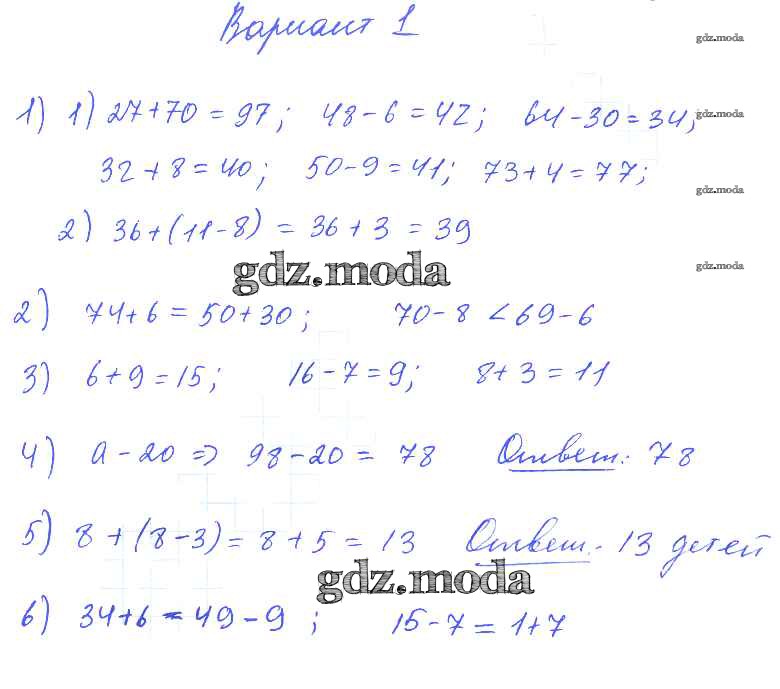 Вариант 1
gdz.moda
1) 1) 27+70=97; 48-6=42; 64-30=34;
gdz.moda
32+8=40; 50-9=41; 73+4=77;
gdz.moda
2) 36+(11-8) = 36+3 = 39
gdz.moda
gdz.moda
2) 74+6=50+30; 70-8<69-6
3) 6+9=15; 16-7=9; 8+3=11
4) a-20 => 98-20= 78 Ответ: 78
5) 8+(8-3)=8+5=13 Ответ. 13 детей
gdz.moda
6) 34+6=49-9; 15-7=1+7